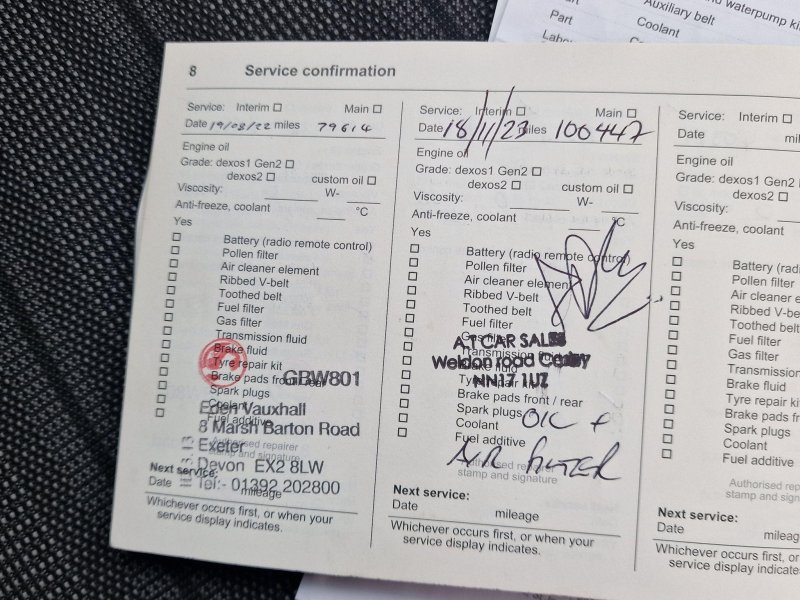 Auxiliary belt
and waterpump
Part
Coolant
8 Service confirmation
Service: Interim Main
Date 19/08/22 miles 79614
Engine oil
Grade: dexos1 Gen2
dexos2 custom oil
Viscosity: W-
Anti-freeze, coolant °C
Yes
Battery (radio remote control)
Pollen filter
Air cleaner element
Ribbed V-belt
Toothed belt
Fuel filter
Gas filter
Transmission fluid
Brake fluid
Tyre repair kit
Brake pads front / rear
GBW801
Spark plugs
Coolant
Fuel additive
Eden Vauxhall
8 Marsh Barton Road
Exeter
Devon EX2 8LW
Tel:- 01392 202800
Authorised repairer
stamp and signature
Next service:
Date mileage
Whichever occurs first, or when your
service display indicates.
Service: Interim Main
Date 18/11/23 miles 100447
Engine oil
Grade: dexos1 Gen2
dexos2 custom oil
Viscosity: W-
Anti-freeze, coolant °C
Yes
Battery (radio remote control)
Pollen filter
Air cleaner element
Ribbed V-belt
Toothed belt
Fuel filter
Gas filter
A1 CAR SALES
Transmission fluid
Weldon road Corby
NN17 1UZ
Tyre repair kit
Brake pads front / rear
Spark plugs
Coolant
Fuel additive
OIL +
AIR FILTER
Authorised repairer
stamp and signature
Next service:
Date mileage
Whichever occurs first, or when your
service display indicates.
Service: Interim
Date
Engine oil
Grade: dexos1 Gen2
dexos2
Viscosity:
Anti-freeze, coolant
Yes
Battery (radio
Pollen filter
Air cleaner
Ribbed V-belt
Toothed belt
Fuel filter
Gas filter
Transmission
Brake fluid
Tyre repair
Brake pads
Spark plugs
Coolant
Fuel additive
Authorised
stamp and
Next service:
Date mileage
Whichever occurs first, or
service display